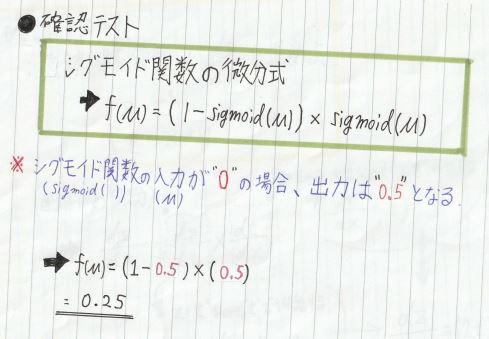 ●確認テスト
シグモイド関数の微分式
➡ f(u) = (1-sigmoid(u)) × sigmoid(u)
※ シグモイド関数の入力が"0"の場合、出力は"0.5"となる.
(sigmoid( )) (u)
➡ f(u) = (1-0.5) × (0.5)
= 0.25